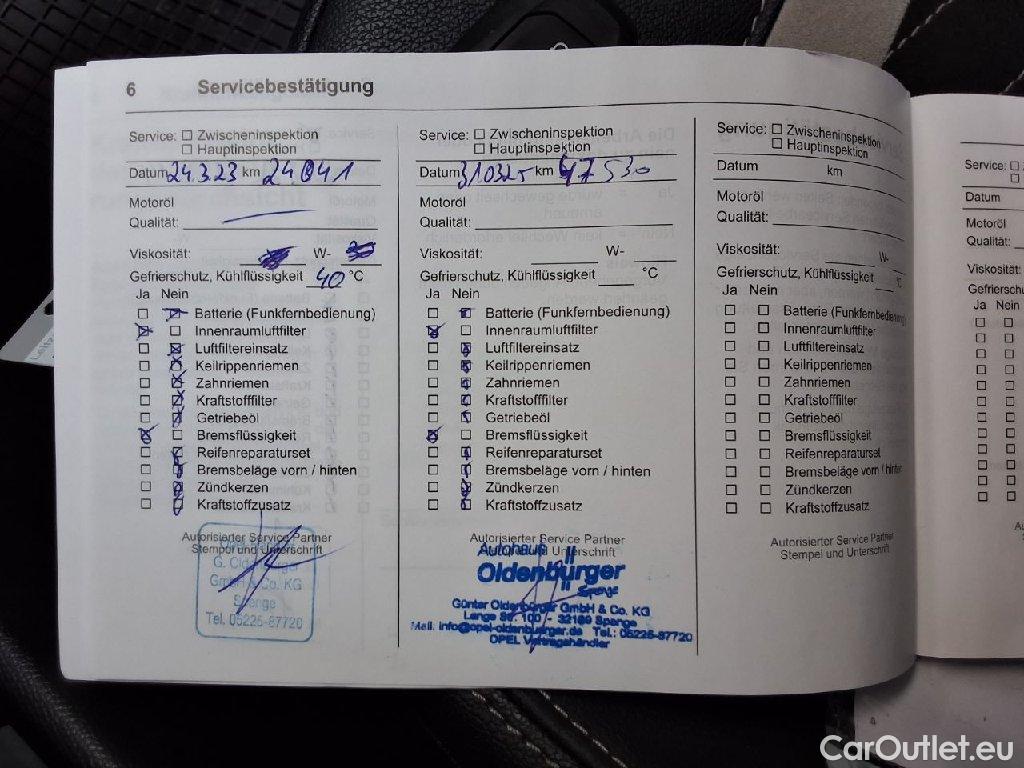 6 Servicebestätigung
Service: Zwischeninspektion
Hauptinspektion
Datum 24.3.23 km 24.041
Motoröl
Qualität:
Viskosität: W-
Gefrierschutz, Kühlflüssigkeit 40 °C
Ja Nein
Batterie (Funkfernbedienung)
Innenraumluftfilter
Luftfiltereinsatz
Keilrippenriemen
Zahnriemen
Kraftstofffilter
Getriebeöl
Bremsflüssigkeit
Reifenreparaturset
Bremsbeläge vorn / hinten
Zündkerzen
Kraftstoffzusatz
Autorisierter Service Partner
Stempel und Unterschrift
GmbH & Co. KG
Spenge
Tel. 05225-87720
Service: Zwischeninspektion
Hauptinspektion
Datum 310325 km 47530
Motoröl
Qualität:
Viskosität: W-
Gefrierschutz, Kühlflüssigkeit °C
Ja Nein
Batterie (Funkfernbedienung)
Innenraumluftfilter
Luftfiltereinsatz
Keilrippenriemen
Zahnriemen
Kraftstofffilter
Getriebeöl
Bremsflüssigkeit
Reifenreparaturset
Bremsbeläge vorn / hinten
Zündkerzen
Kraftstoffzusatz
Autorisierter Service Partner
Unterschrift
Autohaus
Oldenbürger
Spenge
Günter Oldenbürger GmbH & Co. KG
Lange Str. 100 - 32139 Spenge
Mail: info@opel-oldenbuerger.de Tel.: 05225-87720
OPEL Vertragshändler
Service: Zwischeninspektion
Hauptinspektion
Datum km
Motoröl
Qualität:
Viskosität: W-
Gefrierschutz, Kühlflüssigkeit °C
Ja Nein
Batterie (Funkfernbedienung)
Innenraumluftfilter
Luftfiltereinsatz
Keilrippenriemen
Zahnriemen
Kraftstofffilter
Getriebeöl
Bremsflüssigkeit
Reifenreparaturset
Bremsbeläge vorn / hinten
Zündkerzen
Kraftstoffzusatz
Autorisierter Service Partner
Stempel und Unterschrift
Service:
Datum
Motoröl
Qualität:
Viskosität:
Ja Nein
CarOutlet.eu